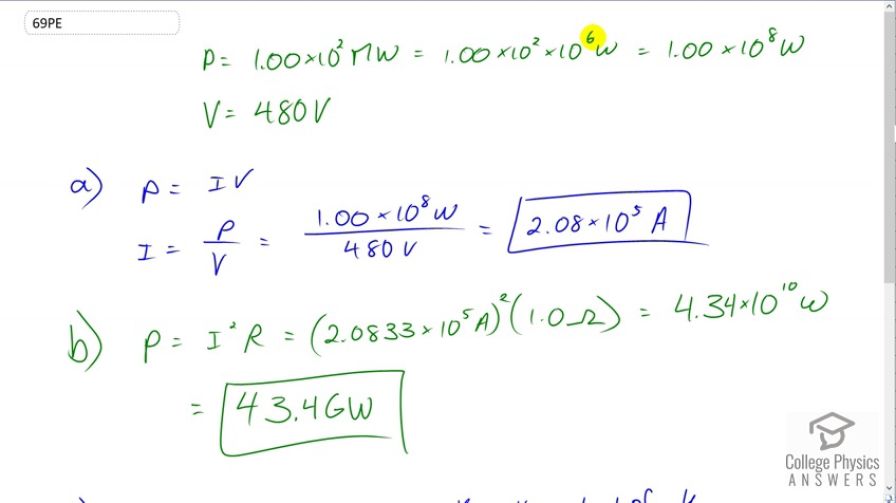 69PE
P = 1.00×10² MW = 1.00×10²×10⁶ W = 1.00×10⁸ W
V = 480 V
a) P = IV
I = P/V = 1.00×10⁸ W / 480 V = 2.08×10⁵ A
b) P = I²R = (2.0833×10⁵ A)² (1.0 Ω) = 4.34×10¹⁰ W
= 43.4 GW
College Physics
ANSWERS